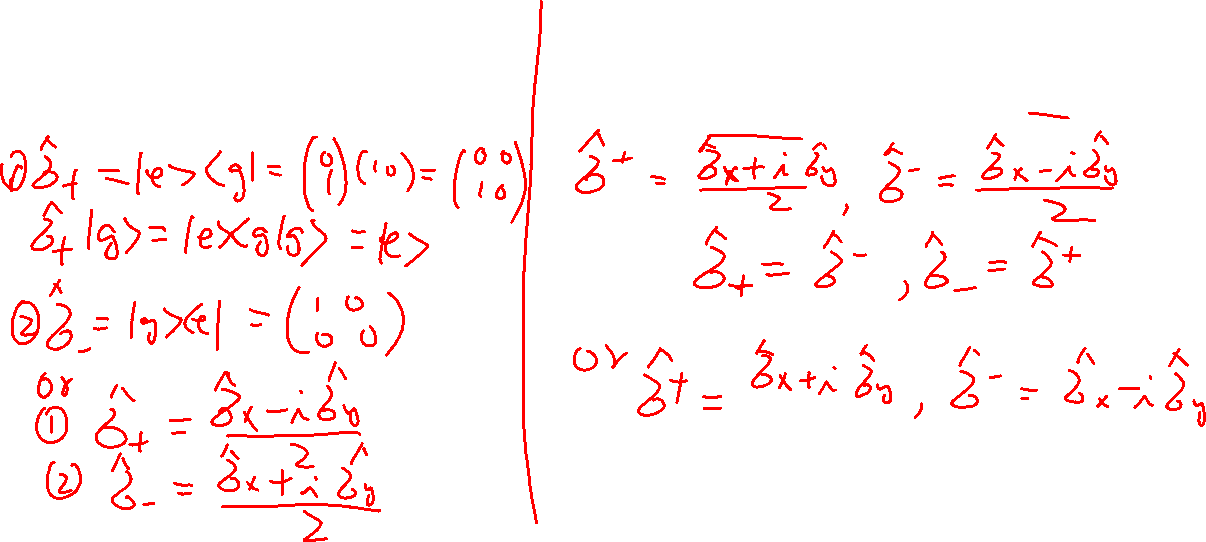 ① σ̂₊ = |e><g| = (0 1)(1 0) = (0 0 1 0)
σ̂₊|g> = |e><g|g> = |e>
② σ̂₋ = |g><e| = (1 0 0 0)
or
① σ̂₊ = (σ̂x - iσ̂y)/2
② σ̂₋ = (σ̂x + iσ̂y)/2
σ̂⁺ = (σ̂x + iσ̂y)/2, σ̂⁻ = (σ̂x - iσ̂y)/2
σ̂₊ = σ̂⁻, σ̂₋ = σ̂⁺
or σ̂⁺ = σ̂x + iσ̂y, σ̂⁻ = σ̂x - iσ̂y